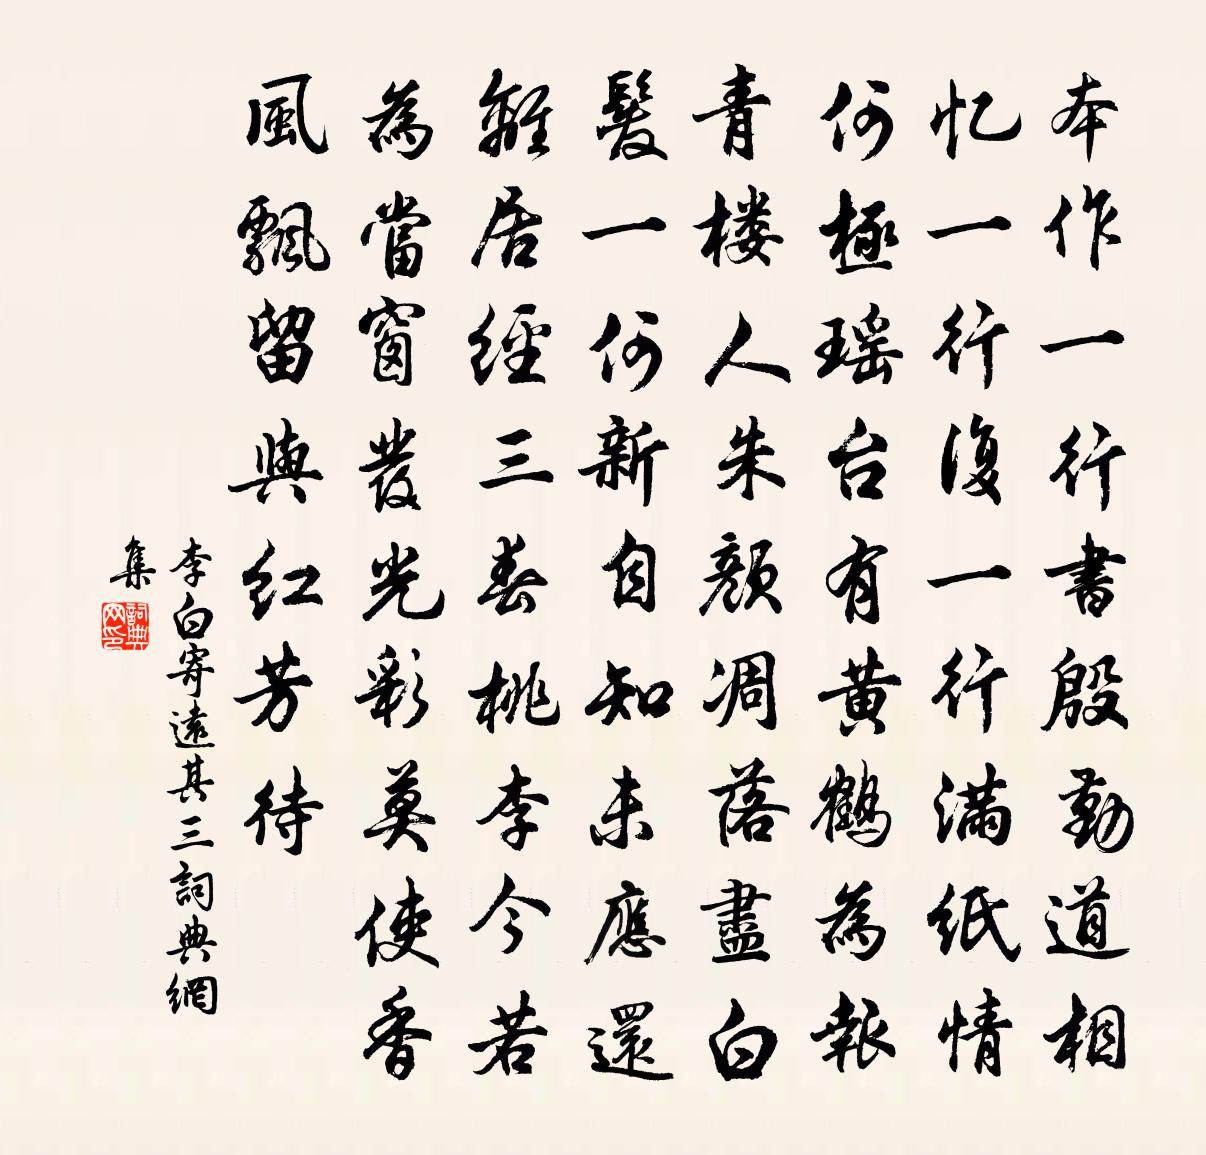 本作一行書殷勤道相
忆一行復一行满紙情
何極瑶台有黄鶴為報
青楼人朱顔凋落盡白
髮一何新自知未應還
離居經三春桃李今若
為當窗發光彩莫使香
風飄留與红芳待
李白寄遠其三詞典網
集
詞典
网印